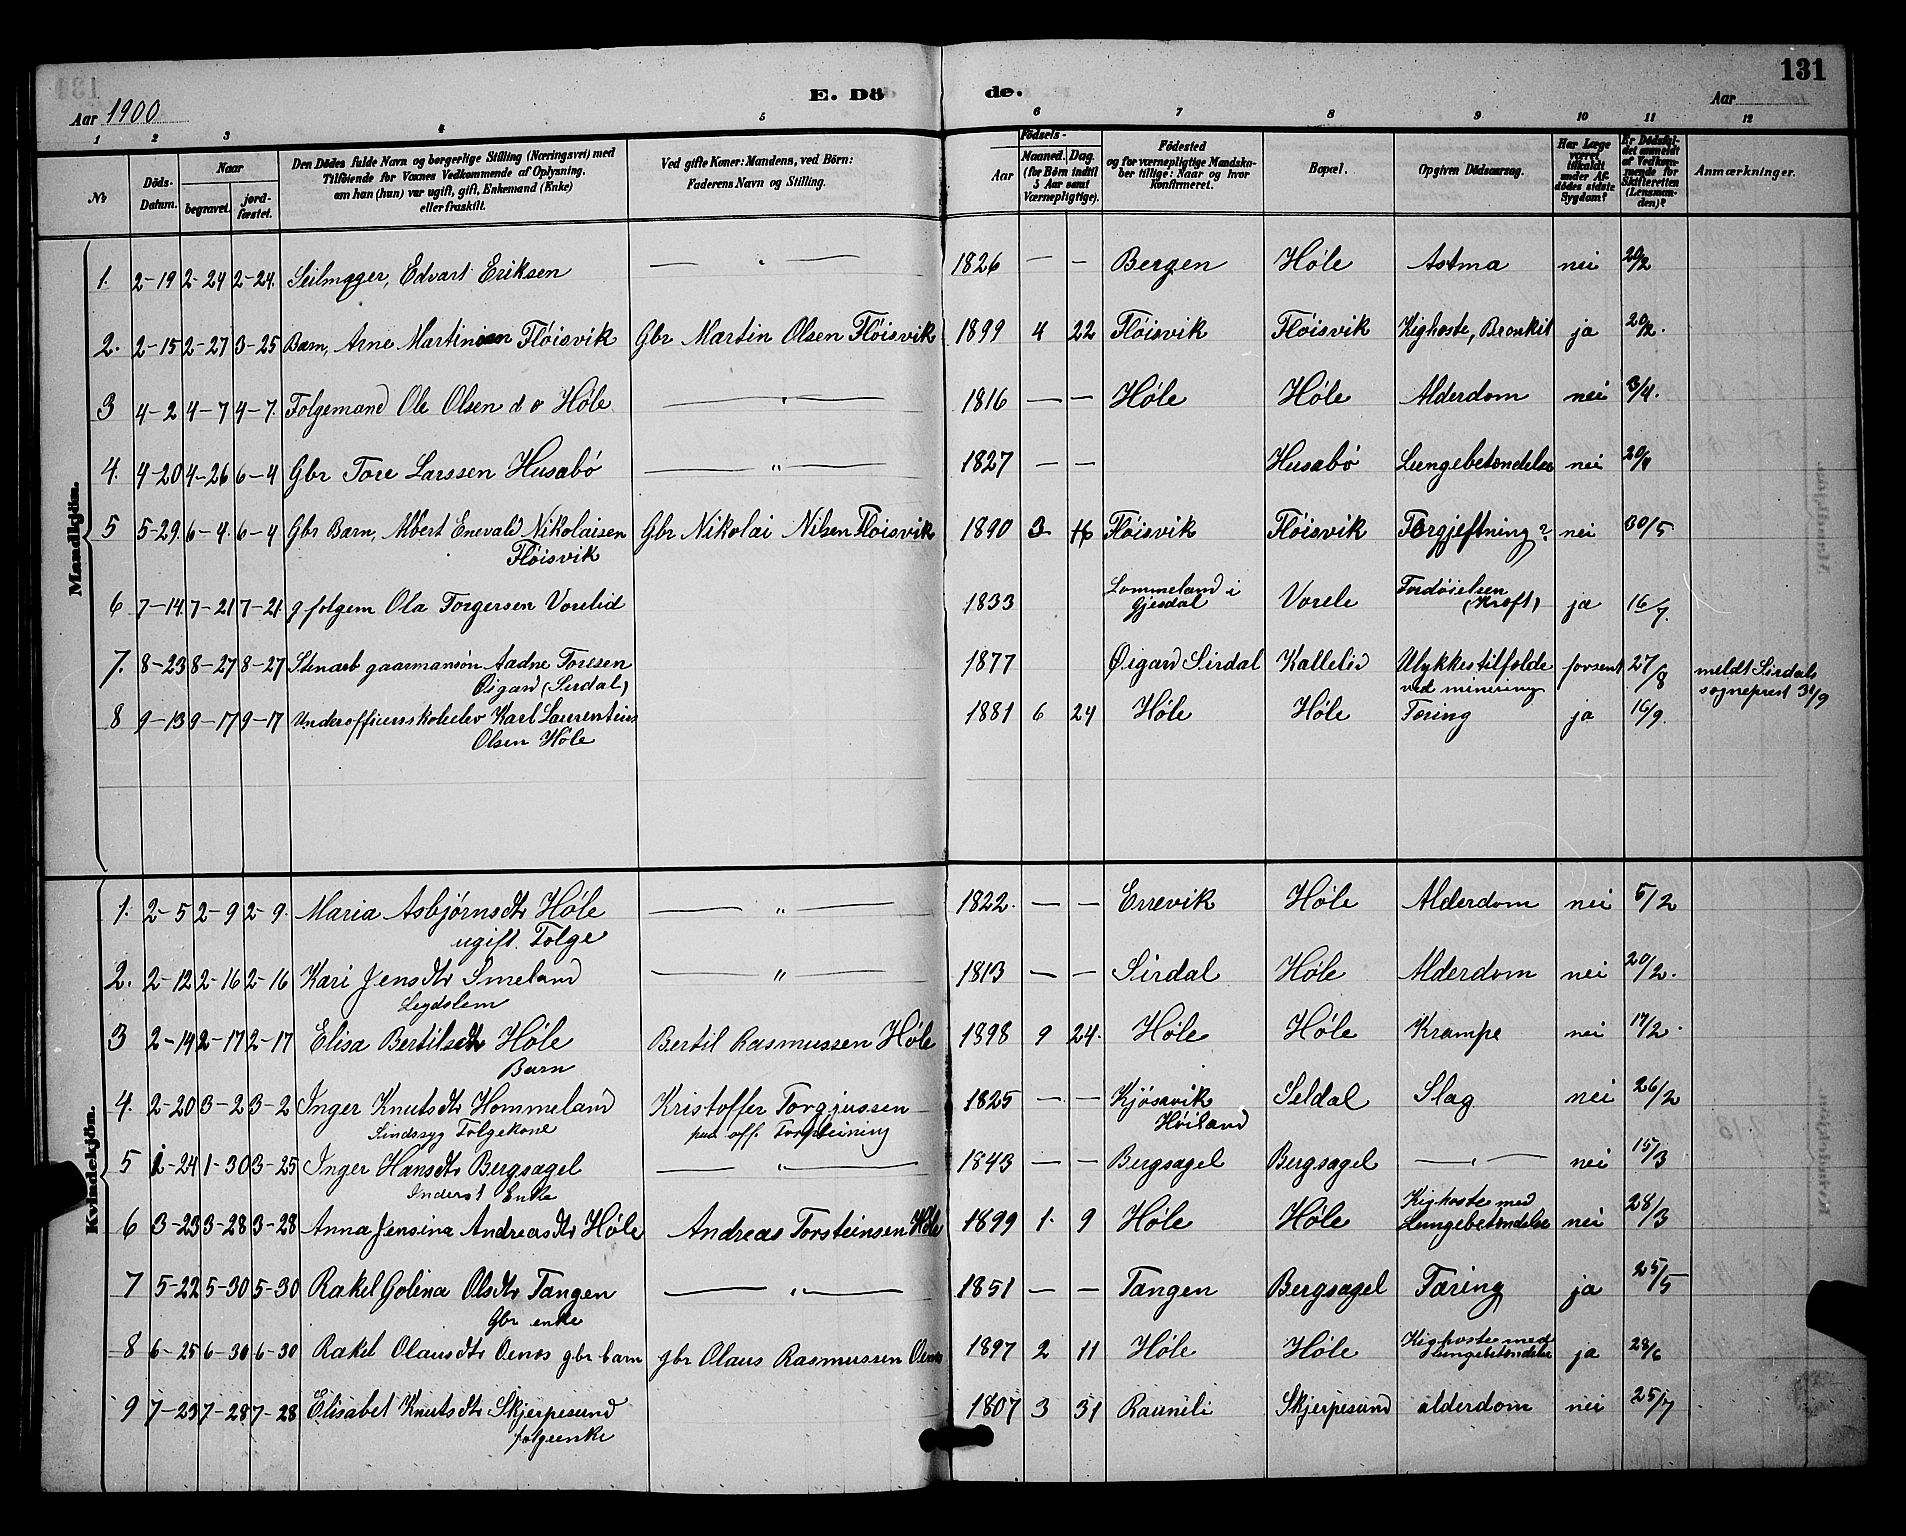 131
Aar 1900
E. Dö de.
Aar
1 2 3 4 5 6 7 8 9 10 11 12
№
Döds-
Datum.
Naar
begravet.
jord-
fæstet.
Den Dödes fulde Navn og borgerlige Stilling (Næringsvei) med
Tilföiende for Voxnes Vedkommende af Oplysning,
om han (hun) var ugift, gift, Enkemand (Enke)
eller fraskilt.
Ved gifte Koner: Mandens, ved Börn:
Faderens Navn og Stilling.
Födsels-
Aar
Maaned. Dag.
(for Börn indtil
5 Aar samt
Værnepligtige).
Födested
og for værnepligtige Mandska-
ber tillige: Naar og hvor
konfirmeret.
Bopæl.
Opgiven Dödsaarsag.
Har Læge
været
tilkaldt
under Af-
dödes sidste
Sygdom?
Er Dödsfal-
det anmeldt
af Vedkom-
mende for
Skifteretten
(Lensman-
den)?
Anmærkninger.
Mandkjön.
1. 2-19 2-24 2-24. Seilmager, Edvart Eriksen — " — 1826 — — Bergen Høle Astma nei 20/2
2. 2-15 2-27 3-25 Barn, Arne Martinsen Fløisvik Gbr Martin Olsen Fløisvik 1899 4 22 Fløisvik Fløisvik Kighoste, Bronkit ja 20/2.
3 4-2 4-7 4-7. Folgemand Ole Olsen d o Høle — " — 1816 — — Høle Høle Alderdom nei 3/4.
4. 4-20 4-26 6-4 Gbr Tore Larssen Husabø — " — 1827 — — Husabø Lungebetændelse nei 20/4
5 5-29. 6-4. 6-4 Gbr Barn, Albert Enevald Nikolaisen Gbr Nikolai Nilsen Fløisvik 1890 3 16 Fløisvik Fløisvik Forgjeftning? nei 30/5
Fløisvik
6 7-14 7-21 7-21. g folgem Ola Torgersen Vorelid 1833 Lommeland i Vorele Fordøielsen ja 16/7.
Gjesdal (Kræft)
7. 8-23 8-27 8-27 Stenarb gaarmansøn Aadne Toresen 1877 Øigard Sirdal Kallelid Ulykkestilfælde forsent 27/8 meldt Sirdals
Øigard (Sirdal) ved minering sogneprest 3/9
8 9-13 9-17 9-17 Underofficersskoleelev Karl Laurentius 1881 6 24 Høle Høle Tæring ja 16/9.
Olsen Høle
Kvindekjön.
1. 2-5 2-9 2-9. Maria Asbjørnsdtr Høle — " — 1822. — — Errevik Høle Alderdom nei 5/2
ugift. Folge
2. 2-12 2-16 2-16 Kari Jensdtr Smeland — " — 1813 — — Sirdal Høle Alderdom nei 20/2.
Legdslem
3 2-14 2-17 2-17 Elisa Bertilsdtr Høle Bertil Rasmussen Høle 1898 9 24. Høle Høle Krampe nei 17/2.
Barn
4. 2-20 3-2 3-2 Inger Knutsdtr Hommeland Kristoffer Torgjussen 1825 — — Kjøsavik Seldal Slag nei 26/2
Sindssyg Folgekone paa off. Forpleining Høiland
5 1-24 1-30 3-25 Inger Hansdtr Bergsagel — " — 1843 — — Bergsagel Bergsagel — " — nei 15/3
Inderst Enke
6 3-23 3-28 3-28 Anna Jensina Andreasdtr Høle Andreas Torsteinsen Høle 1899 1. 9 Høle Høle Kighoste med nei 28/3
Lungebetændelse
7 5-22 5-30 5-30 Rakel Golena Olsdtr Tangen — " — 1851 — — Tangen Bergsagel Tæring ja 25/5
Gbr enke
8 6-25 6-30 6-30 Rakel Olausdtr Oenos gbr barn gbr Olaus Rasmussen Oenos 1897 2 11 Høle Høle Kighoste med ja 28/6
Lungebetændelse
9 7-23 7-28 7-28 Elisabet Knutsdtr Skjerpesund 1807 3 31 Rauneli Skjerpesund alderdom nei 25/7
folgeenke